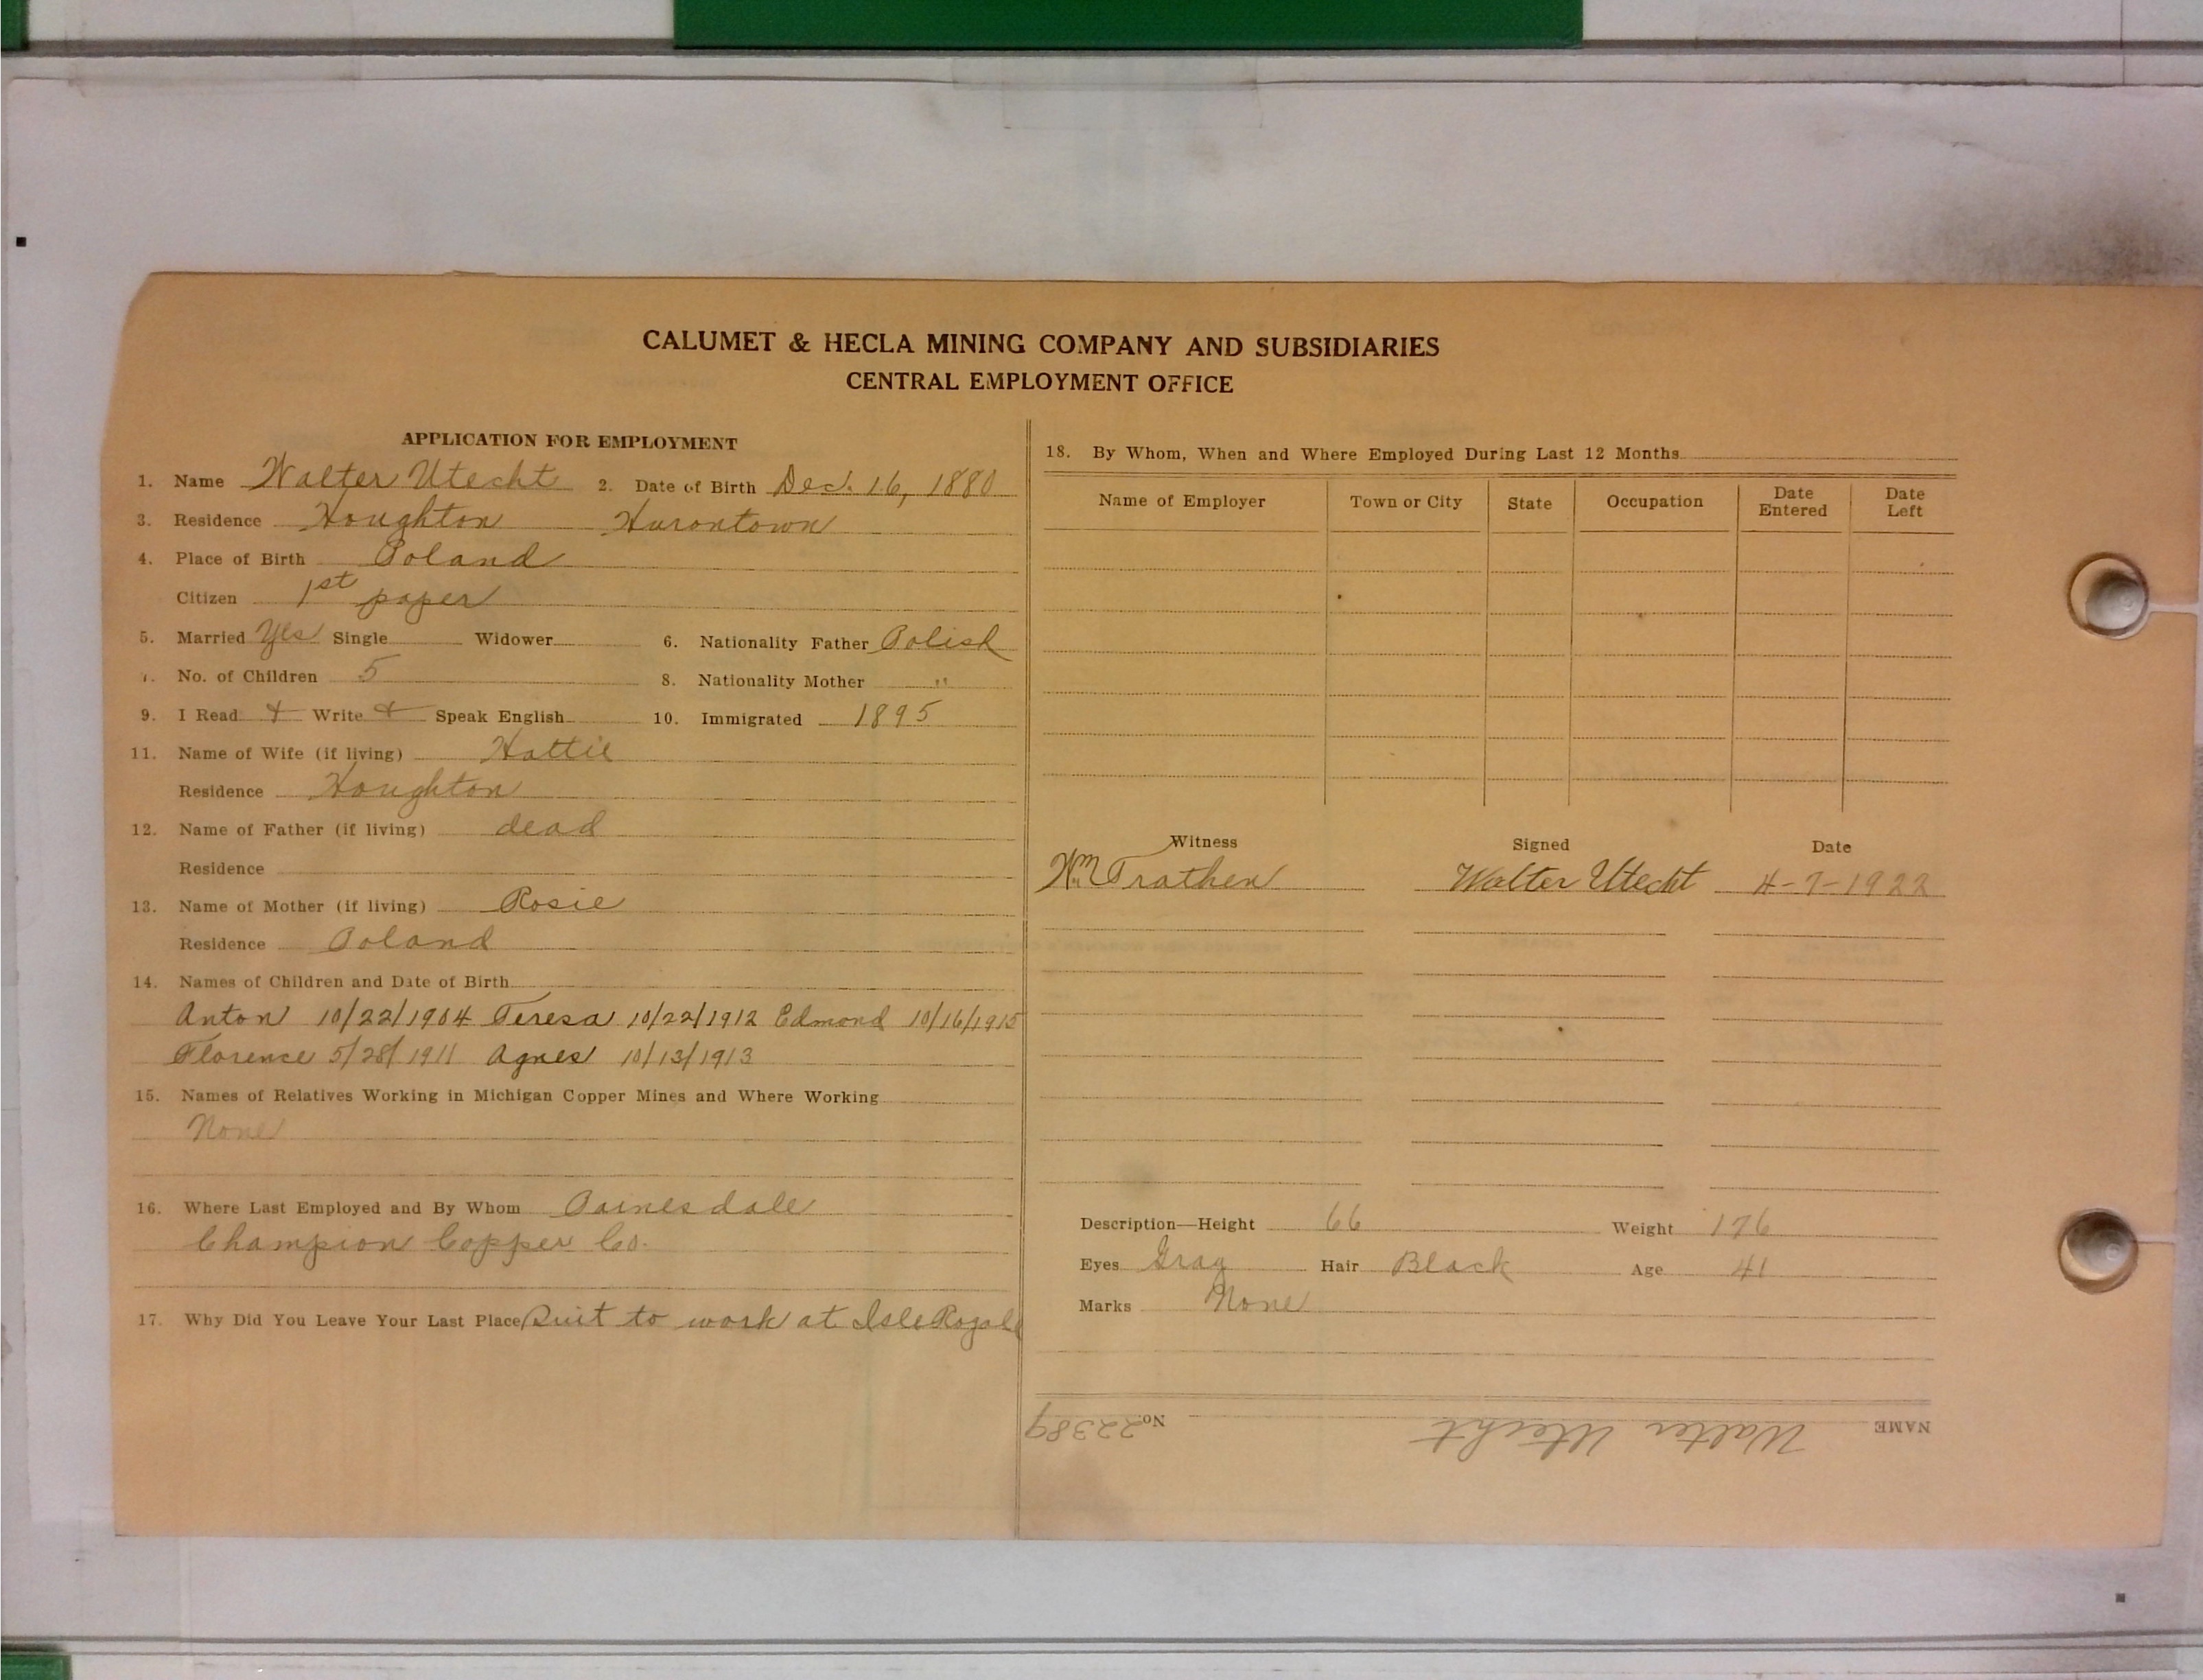 CALUMET & HECLA MINING COMPANY AND SUBSIDIARIES
CENTRAL EMPLOYMENT OFFICE
APPLICATION FOR EMPLOYMENT
1. Name Walter Utecht 2. Date of Birth Dec. 16, 1880
3. Residence Houghton Hurontown
4. Place of Birth Poland
Citizen 1st paper
5. Married Yes Single Widower 6. Nationality Father Polish
7. No. of Children 5 8. Nationality Mother "
9. I Read + Write + Speak English 10. Immigrated 1895
11. Name of Wife (if living) Hattie
Residence Houghton
12. Name of Father (if living) dead
Residence
13. Name of Mother (if living) Rosie
Residence Poland
14. Names of Children and Date of Birth
Anton 10/22/1904 Teresa 10/22/1912 Edmond 10/16/1915
Florence 5/28/1911 Agnes 10/13/1913
15. Names of Relatives Working in Michigan Copper Mines and Where Working
None
16. Where Last Employed and By Whom Painesdale
Champion Copper Co.
17. Why Did You Leave Your Last Place Quit to work at Isle Royale
18. By Whom, When and Where Employed During Last 12 Months
Name of Employer Town or City State Occupation Date Entered Date Left
Witness Signed Date
Wm Trathen Walter Utecht 4-7-1922
Description—Height 66 Weight 176
Eyes Gray Hair Black Age 41
Marks None
NAME Walter Utecht No. 22389